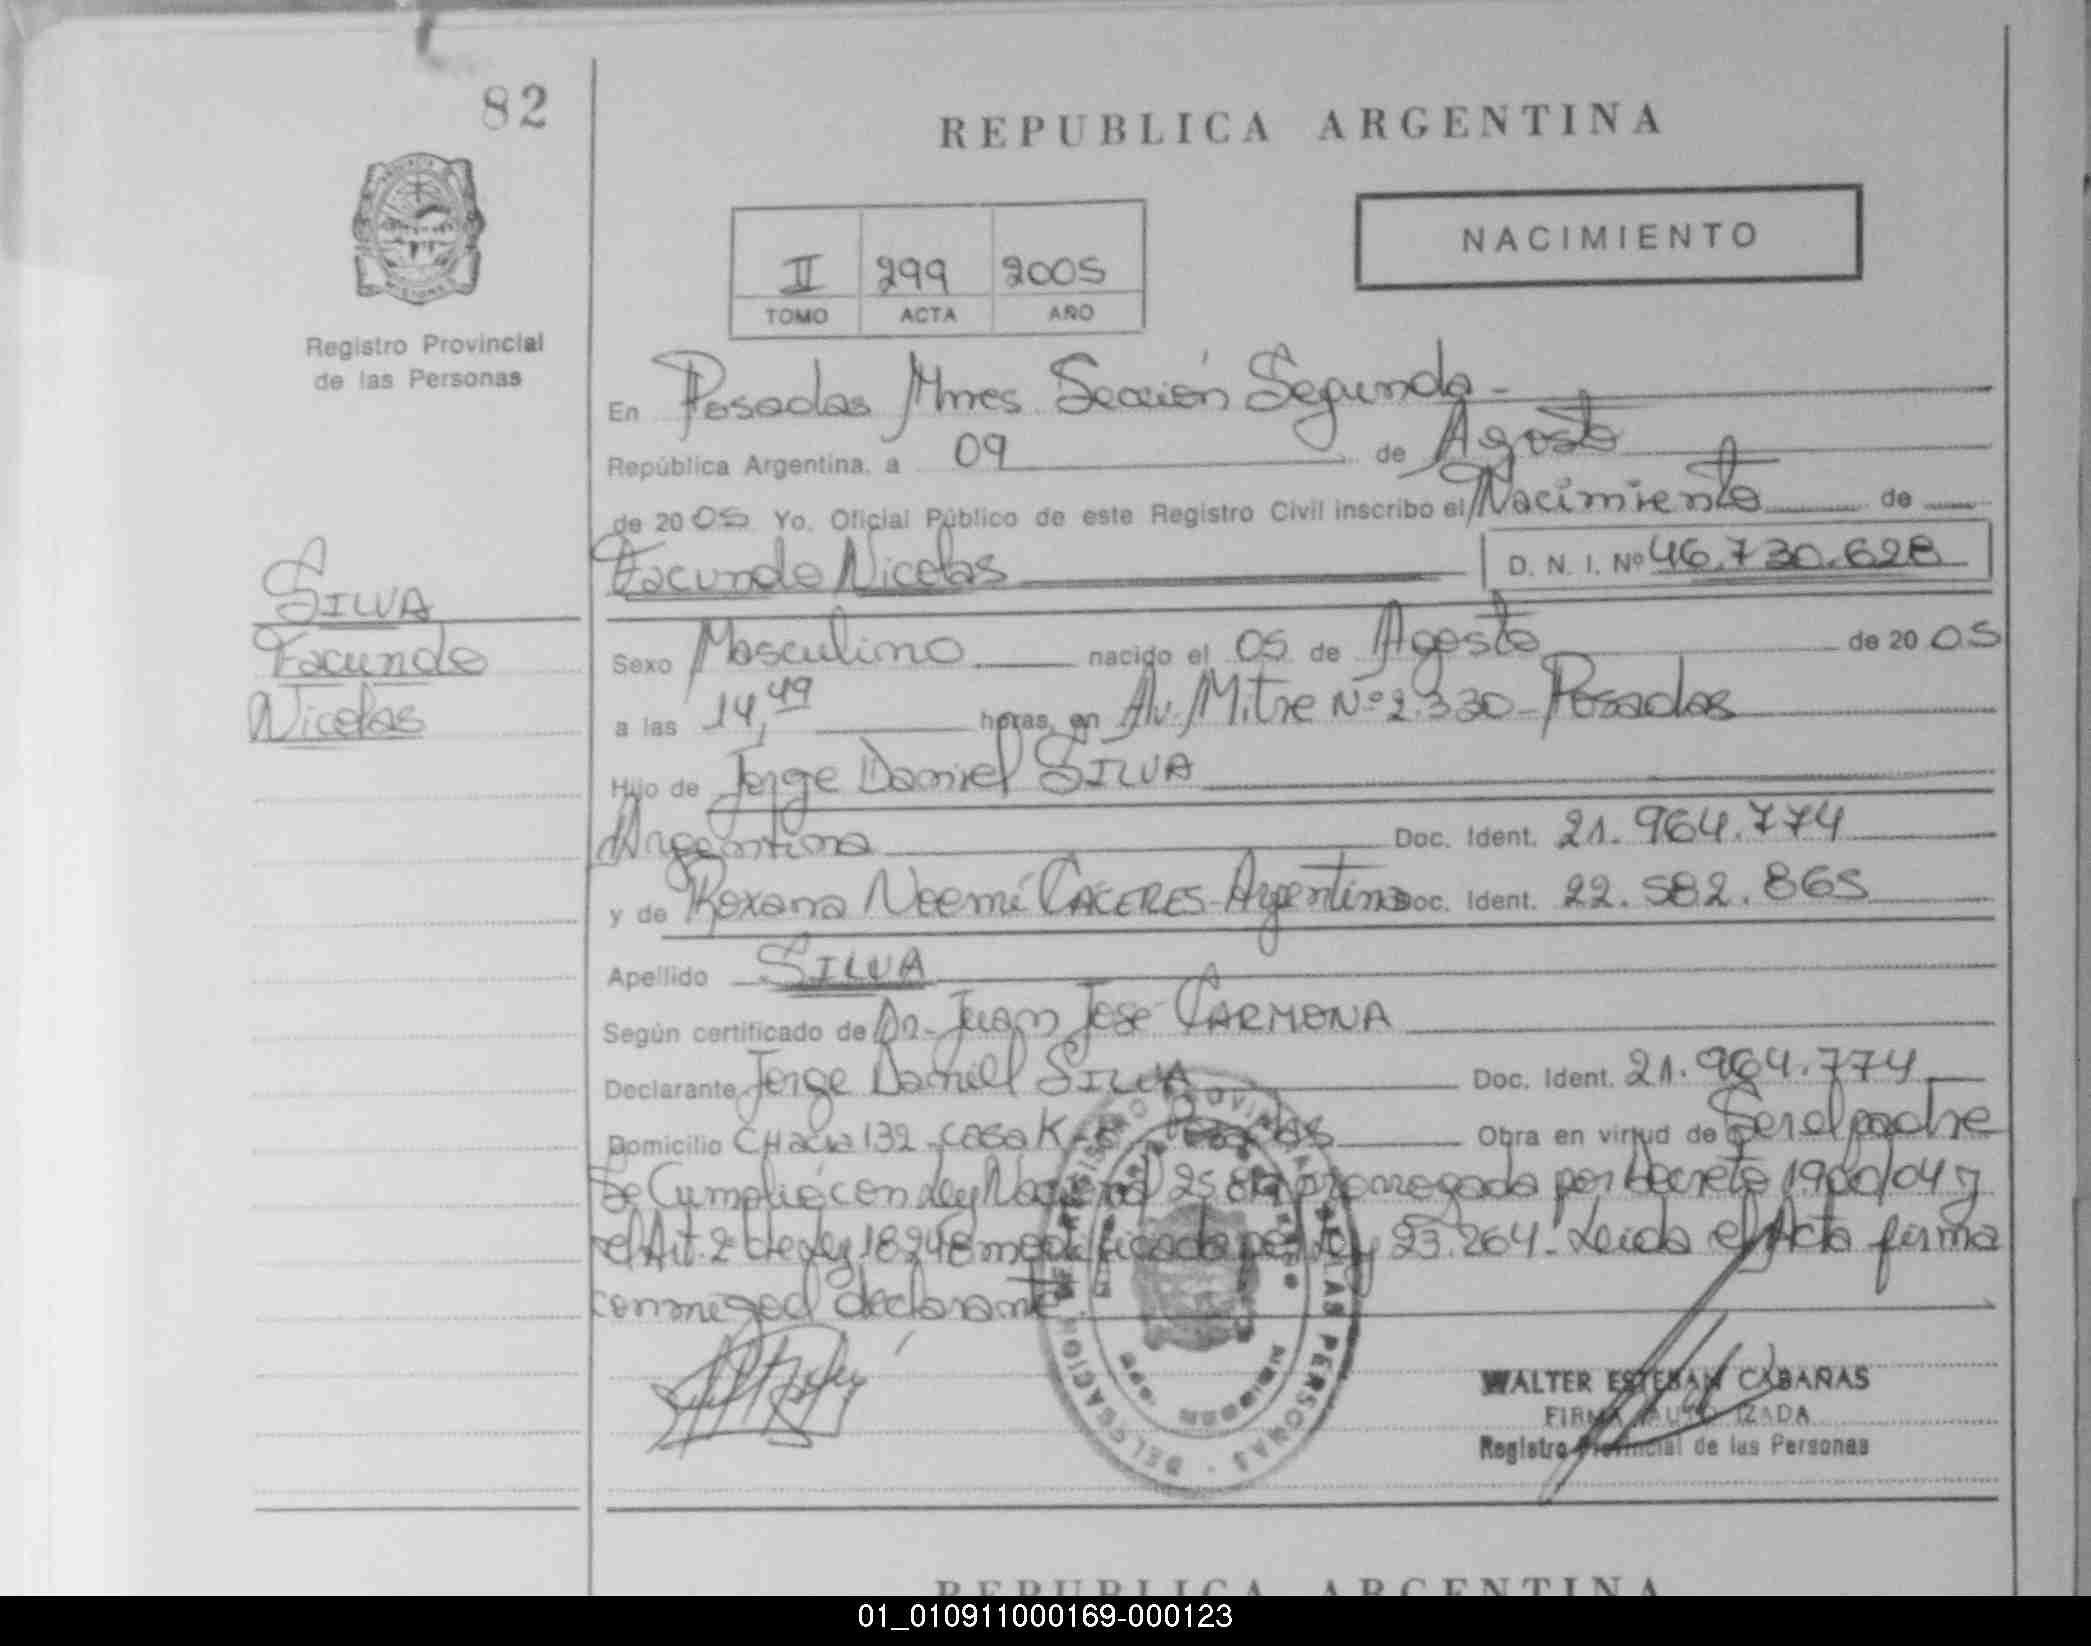 82
REPUBLICA ARGENTINA
NACIMIENTO
II 299 2005
TOMO ACTA AÑO
Registro Provincial
de las Personas
En Posadas Mnes Sección Segunda -
República Argentina, a 09 de Agosto
de 2005 Yo, Oficial Público de este Registro Civil inscribo el Nacimiento de
Facundo Nicolas D. N. I. Nº 46.730.628
SILVA
Facundo
Nicolas
Sexo Masculino nacido el 05 de Agosto de 2005
a las 14,49 horas, en Av. Mitre Nº 2.330 - Posadas
Hijo de Jorge Daniel SILVA
Argentina Doc. Ident. 21.964.774
y de Roxana Noemí CACERES - Argentina Doc. Ident. 22.582.865
Apellido SILVA
Según certificado de Dr. Juan José CARMONA
Declarante Jorge Daniel SILVA Doc. Ident. 21.964.774
Domicilio CHacra 132 - casa K Posadas Obra en virtud de Ser el padre
Se Cumplió con Ley Nacional prorrogada por Decreto 1900/04 y
el Art. 2 de Ley 18248 modificada por Ley 23.264. Leida el Acta firma
conmigo el declarante.
REGISTRO PROVINCIAL DE LAS PERSONAS · DELEGACION
WALTER ESTEBAN CABAÑAS
FIRMA AUTORIZADA
Registro Provincial de las Personas
REPUBLICA ARGENTINA
01_010911000169-000123